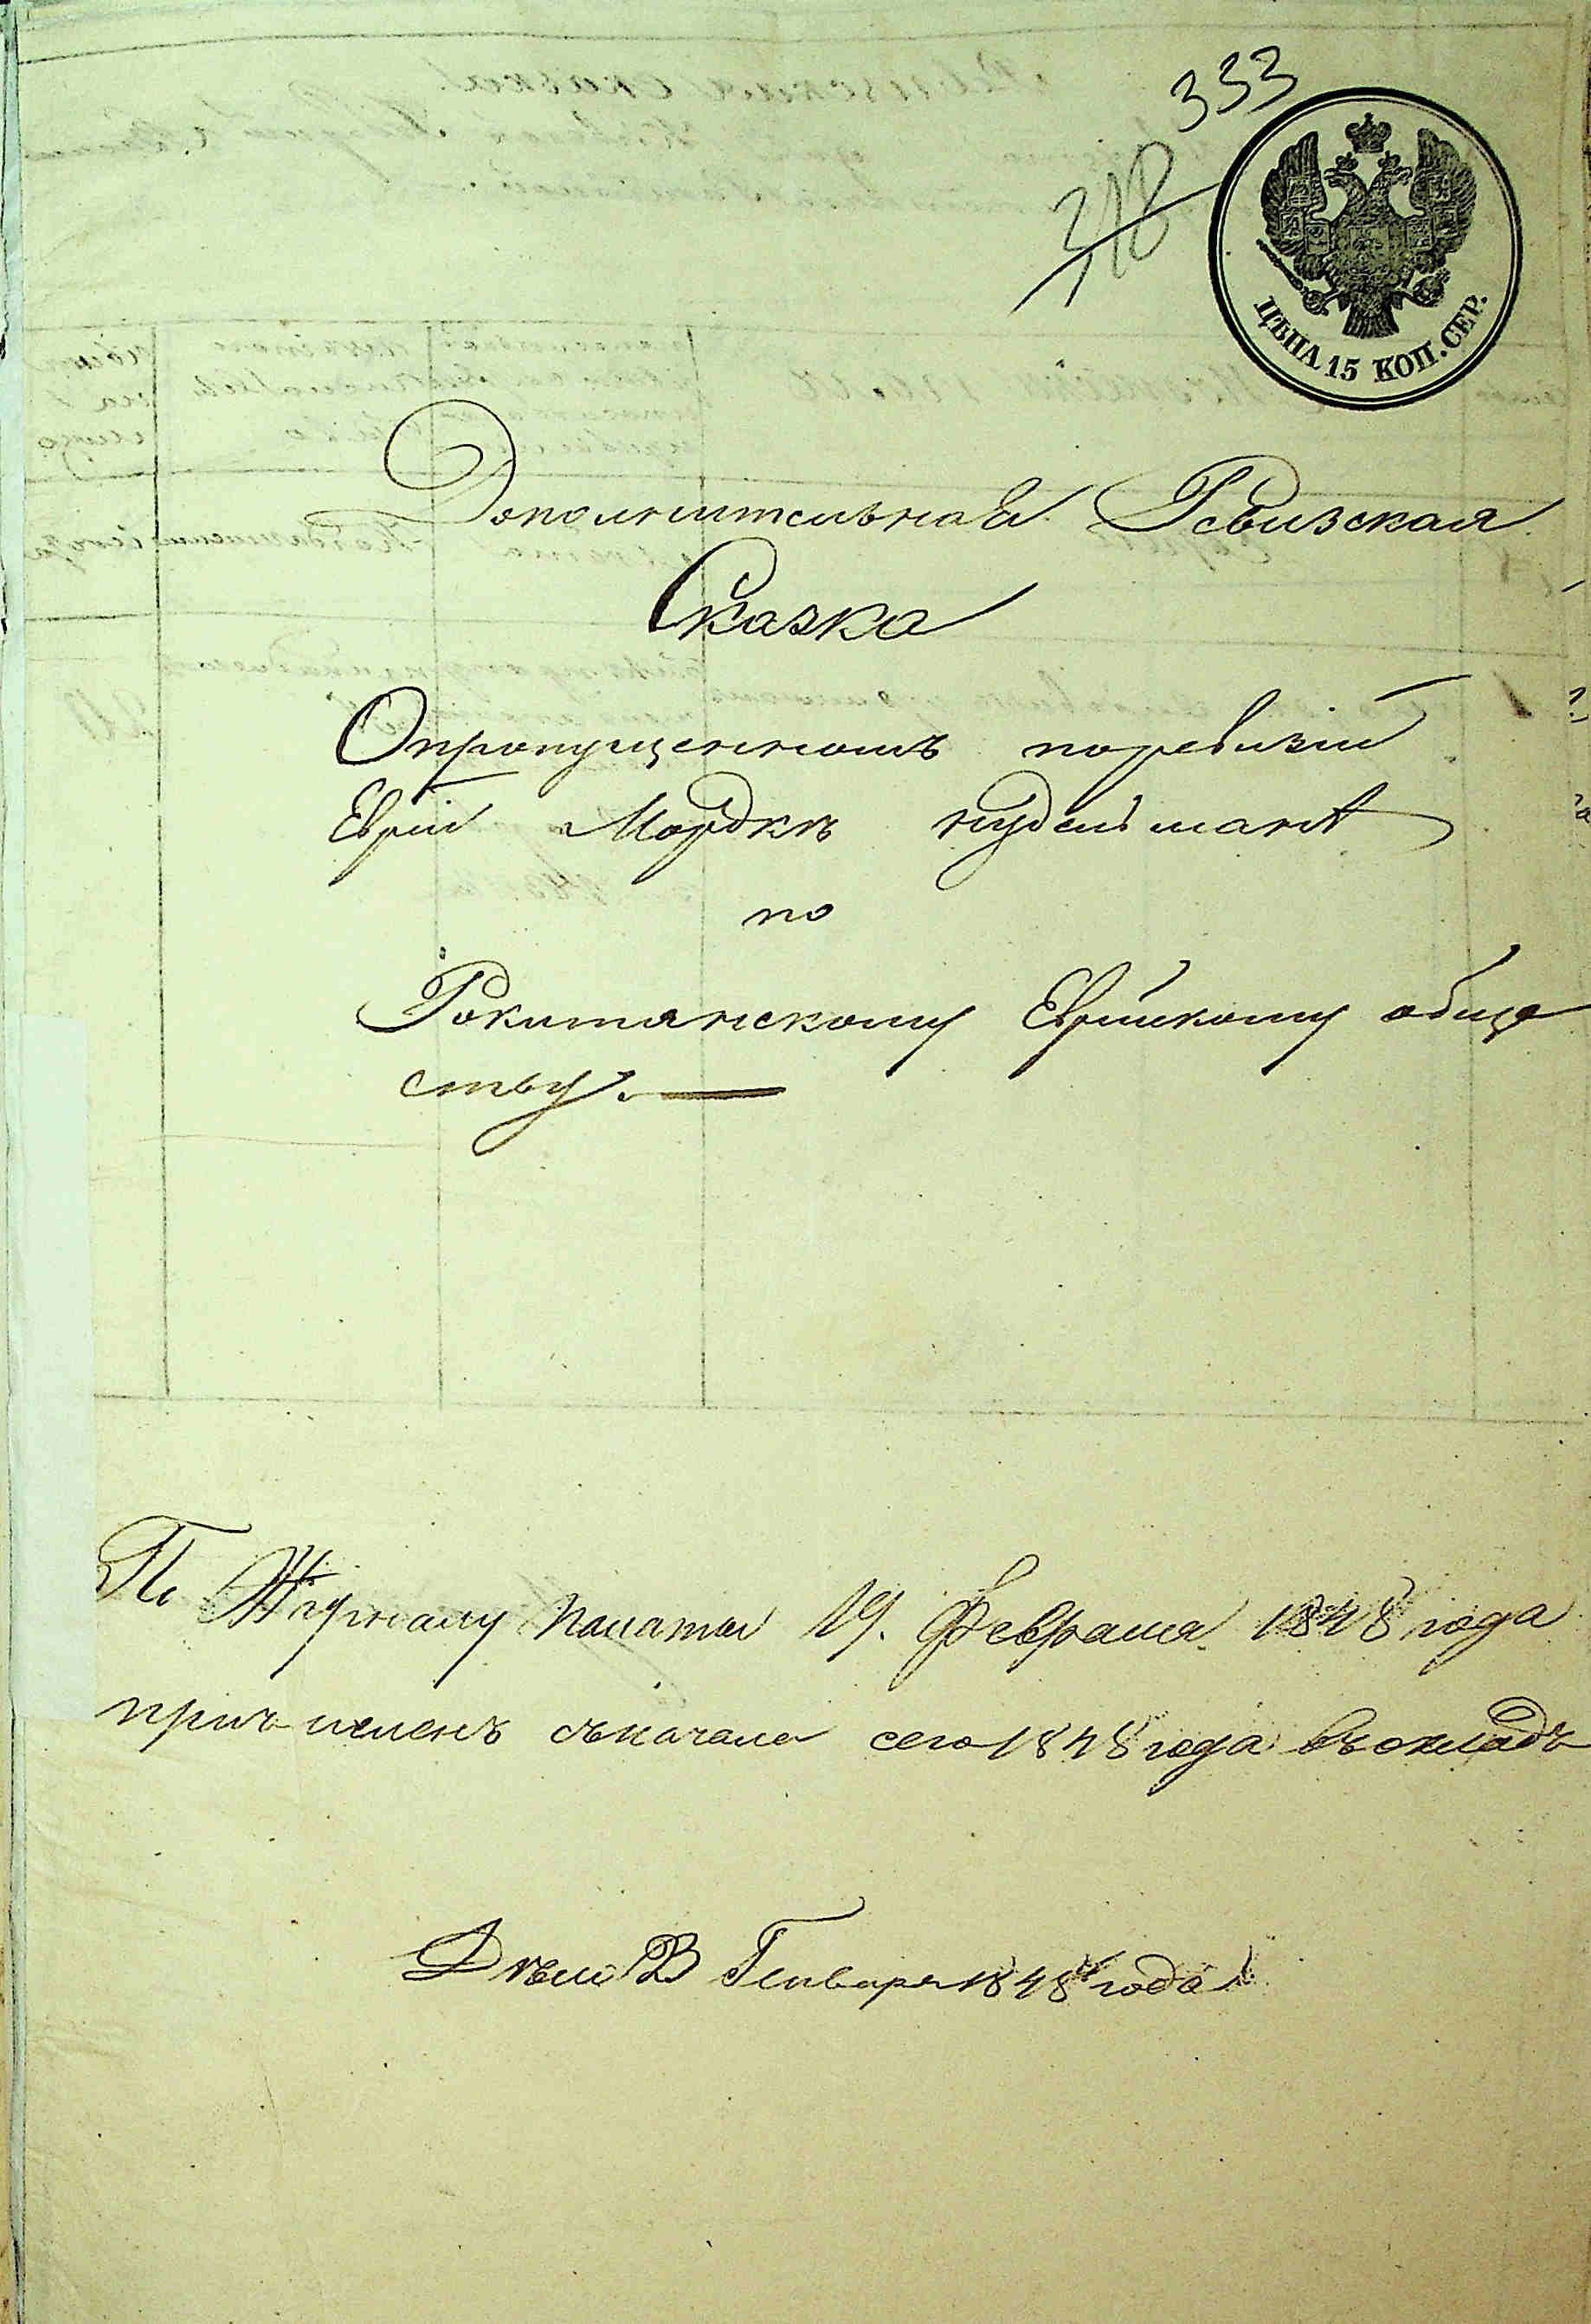 333
318
ЦѢНА 15 КОП. СЕР.
Дополнительная Ревизская
Сказка
Опропущенномъ поревизіи
Евреи Мордкѣ Нудельмант
по
Рокитянскому Еврейскому обще
ству.
По Журналу Палаты 19. Февраля 1848 года
причисленъ съначала сего 1848 года въокладъ
Генваря 1848 года